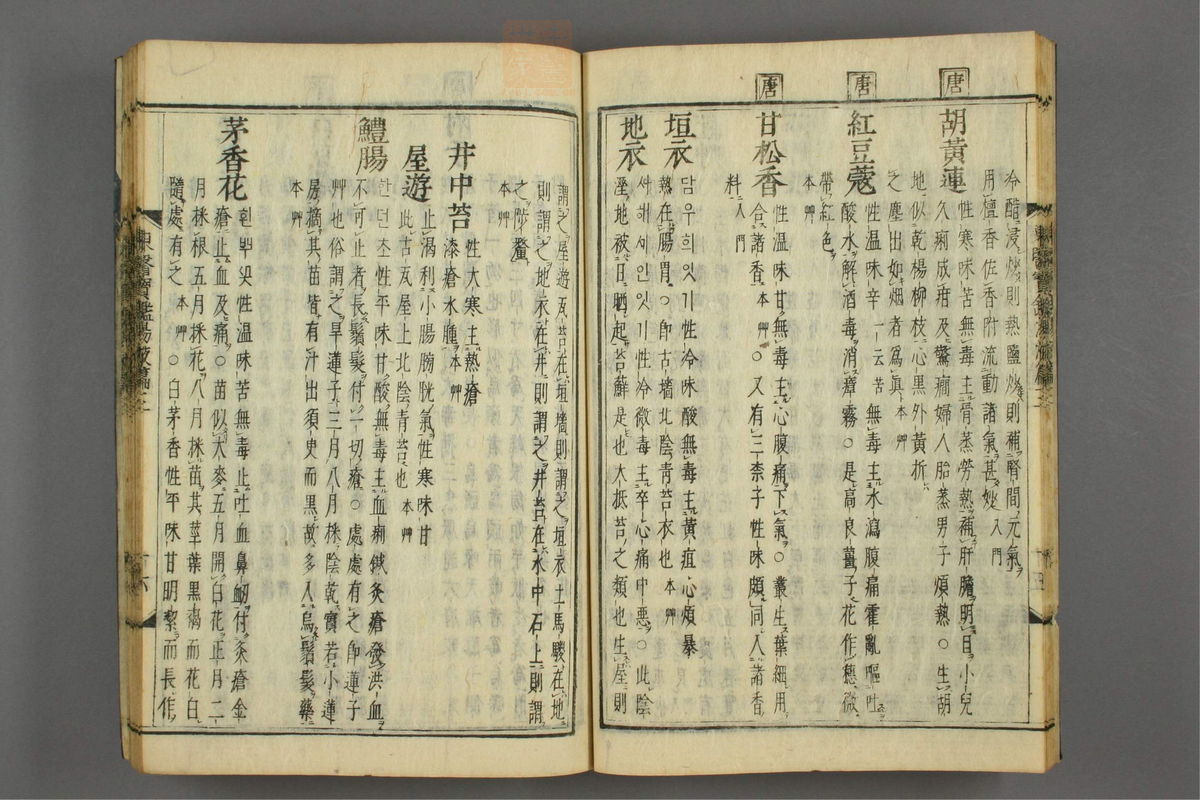 冷醋浸炒則熱鹽炒則補腎間元氣入門
用檀香佐香附流動諸氣甚妙入門
唐
胡黃連 性寒味苦無毒主骨蒸勞熱補肝膽明目小兒
久痢成疳及驚癎婦人胎蒸男子煩熱○生胡
地似乾楊柳枝心黑外黃折
之塵出如烟者爲眞本艸
唐
紅豆蔻 性溫味辛一云苦無毒主水瀉腹痛霍亂嘔吐
酸水解酒毒消瘴霧○是高良薑子花作穗微
帶紅色本艸
唐
甘松香 性溫味甘無毒主心腹痛下氣○叢生葉細用
合諸香本艸○又有三柰子性味頗同入諸香
料入門
垣衣 담우희잇기性冷味酸無毒主黃疸心煩暴
熱在腸胃○卽古墻北陰靑苔衣也本艸
地衣 性冷微毒主卒心痛中惡○此陰
濕地被日晒起苔蘚是也大抵苔之類也生屋則
謂之屋遊瓦苔在垣墻則謂之垣衣土馬騣在地
則謂之地衣在井則謂之井苔在水中石上則謂
之陟釐本艸
井中苔 性大寒主熱瘡
漆瘡水腫本艸
屋遊 止渴利小腸膀胱氣性寒味甘
此古瓦屋上北陰靑苔也本艸
鱧腸 한련초性平味甘酸無毒主血痢鍼灸瘡發洪血
不可止者長鬚髮付一切瘡○處處有之卽蓮子
艸也俗謂之旱蓮子三月八月採陰乾實若小蓮
房摘其苗皆有汁出須臾而黑故多入烏鬚髮藥
本艸
茅香花 흰ᄠᅱᆺ곳性溫味苦無毒止吐血鼻衄付灸瘡金
瘡止血及痛○苗似大麥五月開白花正月二
月採根五月採花八月採苗其莖葉黑褐而花白
隨處有之本艸○白茅香性平味甘明絜而長作